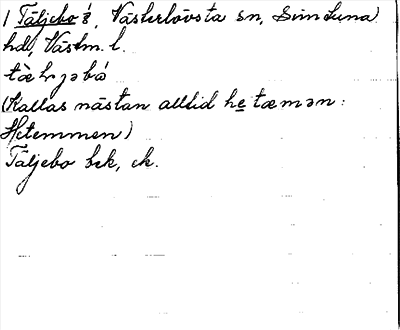 1 Täljebo 8, Västerlövsta sn, Simtuna
hd, Västm. l.
(Kallas nästan alltid he tæmən:
Hetemmen)
Täljebo bek, ek.